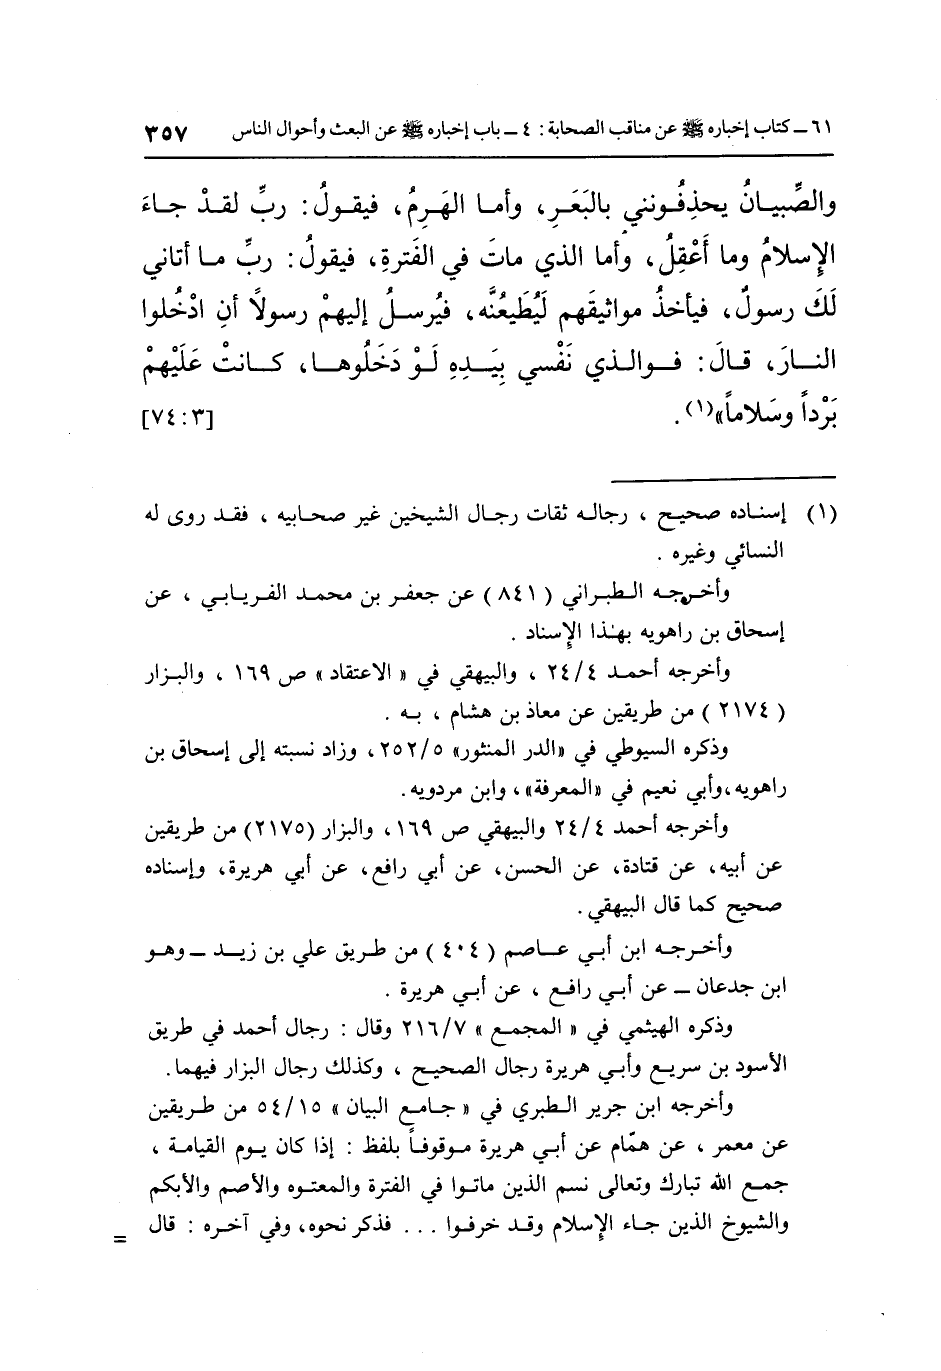 ٦١ ــ كتاب إخباره ﷺ عن مناقب الصحابة : ٤ ــ باب إخباره ﷺ عن البعث وأحوال الناس ٣٥٧
والصِّبيـانُ يحذِفُـونني بالبَعَـرِ، وأمـا الهَـرِمُ، فيقـولُ: ربِّ لقـدْ جـاءَ
الإِسلامُ وما أَعْقِلُ، وأما الذي ماتَ في الفَترةِ، فيقولُ: ربِّ مـا أتاني
لَكَ رسولٌ، فيأخذُ مواثيقَهم لَيُطَيعُنَّه، فيُرسـلُ إليهمْ رسولاً أنِ ادْخُلوا
النـارَ، قـالَ: فـوالـذي نَفْسي بِيَـدِهِ لَـوْ دَخَلُوهـا، كـانتْ عَلَيْهِمْ
بَرْداً وسَلاماً»(١). [٣:٧٤]
(١) إسنـاده صحيـح ، رجالـه ثقات رجـال الشيخين غير صحـابيه ، فقـد روى له
النسائي وغيره .
وأخـرجـه الـطبـراني ( ٨٤١ ) عن جعفـر بن محمـد الفـريـابـي ، عن
إسحاق بن راهويه بهٰذا الإِسناد .
وأخرجه أحمـد ٢٤/٤ ، والبيهقي في « الاعتقاد » ص ١٦٩ ، والبـزار
( ٢١٧٤ ) من طريقين عن معاذ بن هشام ، بـه .
وذكره السيوطي في «الدر المنثور» ٢٥٢/٥، وزاد نسبته إلى إسحاق بن
راهويه،وأبي نعيم في «المعرفة»، وابن مردويه.
وأخرجه أحمد ٢٤/٤ والبيهقي ص ١٦٩، والبزار (٢١٧٥) من طريقين
عن أبيه، عن قتادة، عن الحسن، عن أبي رافع، عن أبي هريرة، وإسناده
صحيح كما قال البيهقي.
وأخـرجـه ابن أبـي عـاصم ( ٤٠٤ ) من طـريق علي بن زيـد ــ وهـو
ابن جدعان ــ عن أبـي رافـع ، عن أبـي هريرة .
وذكره الهيثمي في « المجمع » ٢١٦/٧ وقال : رجال أحمد في طريق
الأسود بن سريع وأبـي هريرة رجال الصحيح ، وكذلك رجال البزار فيهما.
وأخرجه ابن جرير الطبري في « جامع البيان » ٥٤/١٥ من طـريقين
عن معمر ، عن همّام عن أبـي هريرة مـوقوفـاً بلفظ : إذا كان يـوم القيامـة ،
جمـع الله تبارك وتعالى نسم الذين ماتـوا في الفترة والمعتـوه والأصم والأبكم
والشيوخ الذين جـاء الإِسلام وقـد خرفـوا ... فذكر نحوه، وفي آخـره : قال =